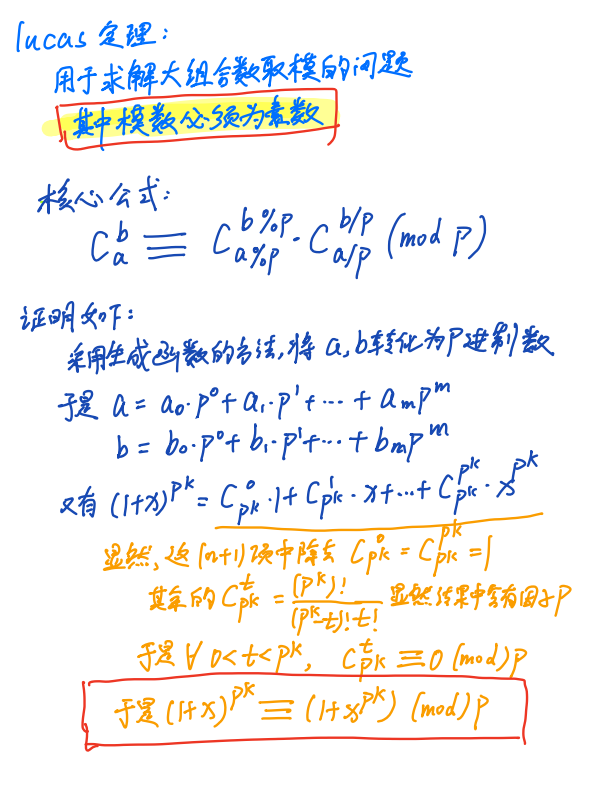 lucas 定理:
用于求解大组合数取模的问题
其中模数必须为素数
核心公式:
C_a^b ≡ C_{a%p}^{b%p} · C_{a/p}^{b/p} (mod p)
证明如下:
采用生成函数的方法,将 a,b转化为P进制数
于是 a = a₀·p⁰ + a₁·p¹ + ··· + aₘpᵐ
b = b₀·p⁰ + b₁·p¹ + ··· + bₘpᵐ
又有 (1+x)^{p^k} = C_{p^k}^0 ·1 + C_{p^k}^1 · x + ··· + C_{p^k}^{p^k} · x^{p^k}
显然, 这 (n+1) 项中除去 C_{p^k}^0 = C_{p^k}^{p^k} = 1
其余的 C_{p^k}^t = \frac{(p^k)!}{(p^k-t)!·t!} 显然结果中含有因子P
于是 ∀ 0<t<p^k, C_{p^k}^t ≡ 0 (mod) p
于是 (1+x)^{p^k} ≡ (1+x^{p^k}) (mod) p